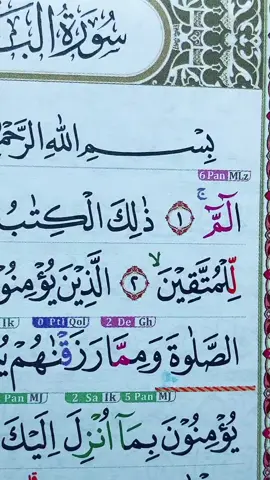 سُورَةُ الْبَ
بِسْمِ اللهِ الرَّحْمٰ
6 Pan MLz
الٓمّٓ ۚ ١ ذٰلِكَ الْكِتٰبُ
لِّلْمُتَّقِيْنَ ۙ ٢ الَّذِيْنَ يُؤْمِنُوْ
Ik 0 Ptl Qol 2 De Gh
الصَّلٰوةَ وَمِمَّا رَزَقْنٰهُمْ يُ
Pan MJ 2 Sa Ik 5 Pan MJ
يُؤْمِنُوْنَ بِمَآ اُنْزِلَ اِلَيْكَ